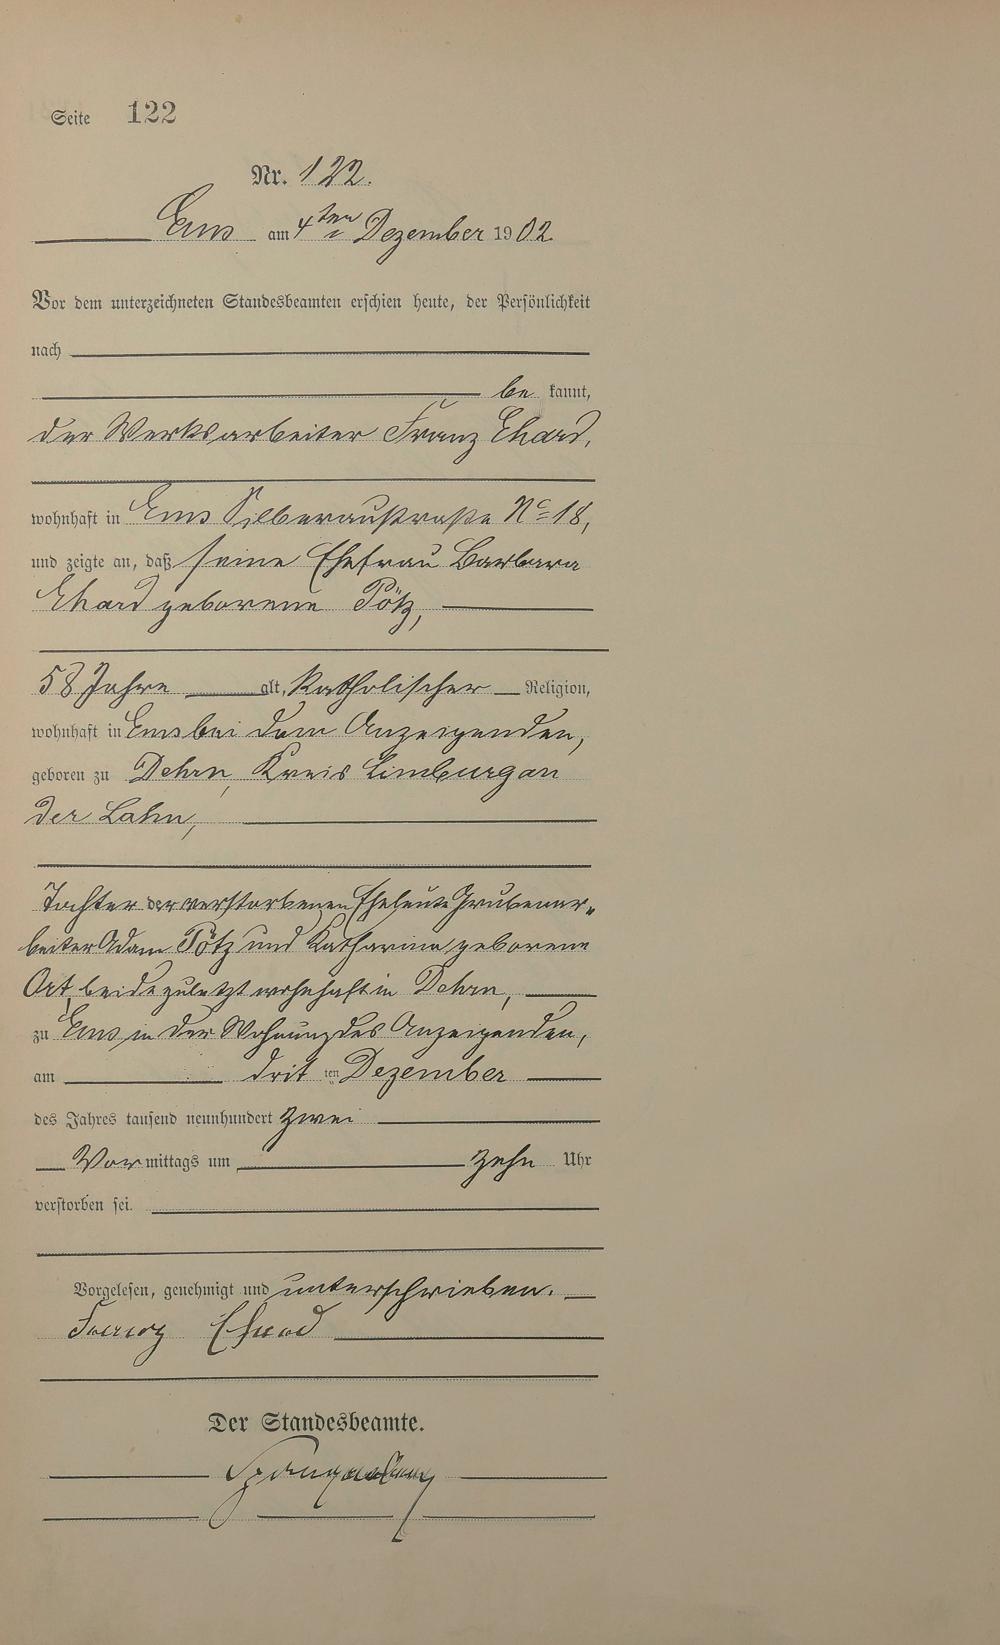 Seite 122
Nr. 122.
Ems am 4ten Dezember 1902.
Vor dem unterzeichneten Standesbeamten erschien heute, der Persönlichkeit
nach
be kannt,
der Werksarbeiter Franz Ehard,
wohnhaft in Ems Silberaustraße No 18,
und zeigte an, daß seine Ehefrau Barbara
Ehard geborene Pötz,
58 Jahre alt, katholischer Religion,
wohnhaft in Ems bei dem Anzeigenden,
geboren zu Dehrn, Kreis Limburg an
der Lahn,
Tochter der verstorbenen Eheleute Grubenar-
beiter Adam Pötz und Katharina geborene
Ort, beide zuletzt wohnhaft in Dehrn,
zu Ems in der Wohnung des Anzeigenden,
am dritten Dezember
des Jahres tausend neunhundert zwei
Vormittags um zehn Uhr
verstorben sei.
Vorgelesen, genehmigt und unterschrieben.
Franz Ehard
Der Standesbeamte.